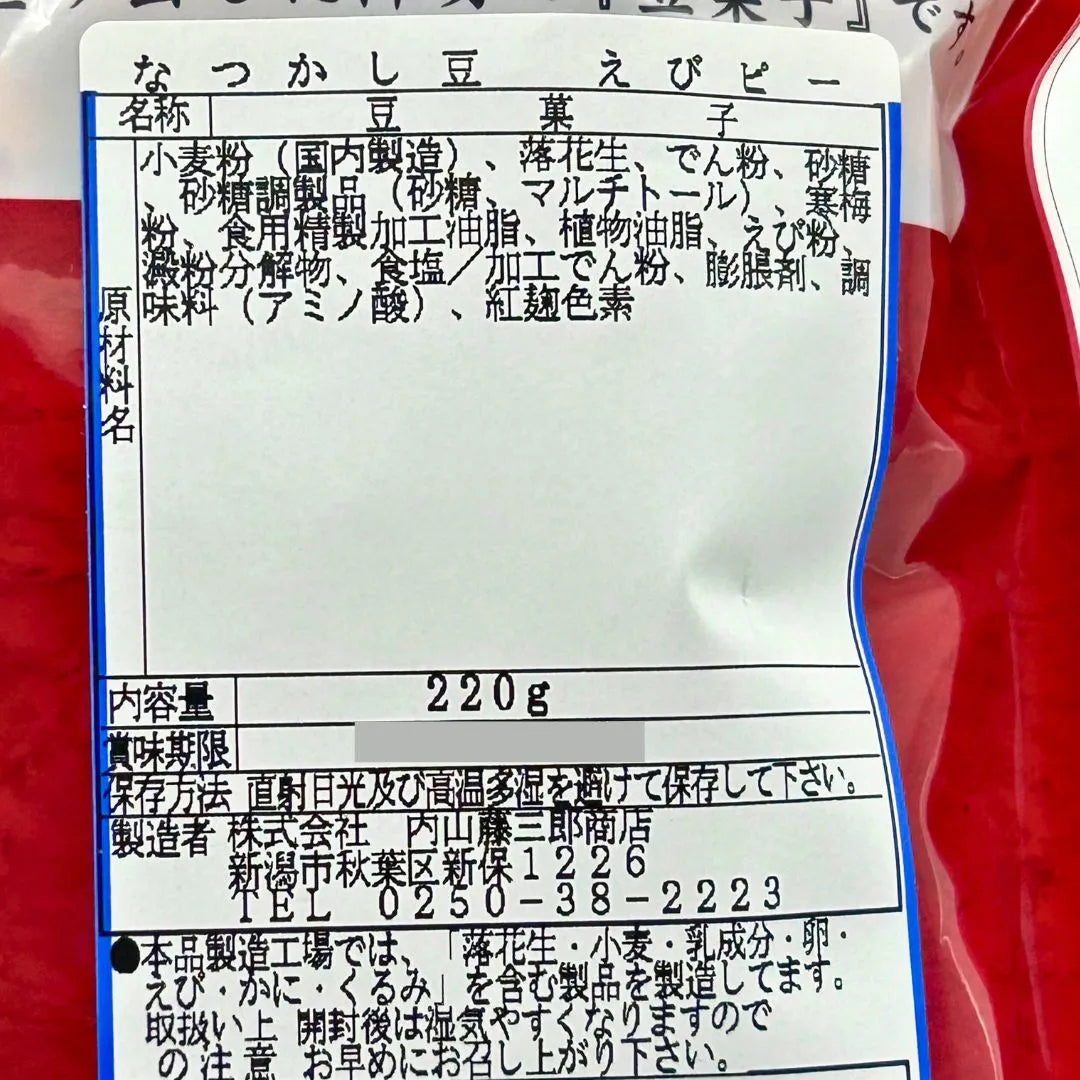 『豆菓子』です。
なつかし豆 えびピー
名称 豆菓子
原材料名
小麦粉（国内製造）、落花生、でん粉、砂糖
、砂糖調製品（砂糖、マルチトール）、寒梅
粉、食用精製加工油脂、植物油脂、えび粉、
澱粉分解物、食塩／加工でん粉、膨脹剤、調
味料（アミノ酸）、紅麹色素
内容量 220g
賞味期限
保存方法 直射日光及び高温多湿を避けて保存して下さい。
製造者 株式会社 内山藤三郎商店
新潟市秋葉区新保1226
TEL 0250-38-2223
●本品製造工場では、「落花生・小麦・乳成分・卵・
えび・かに・くるみ」を含む製品を製造してます。
取扱い上 開封後は湿気やすくなりますので
の注意 お早めにお召し上がり下さい。